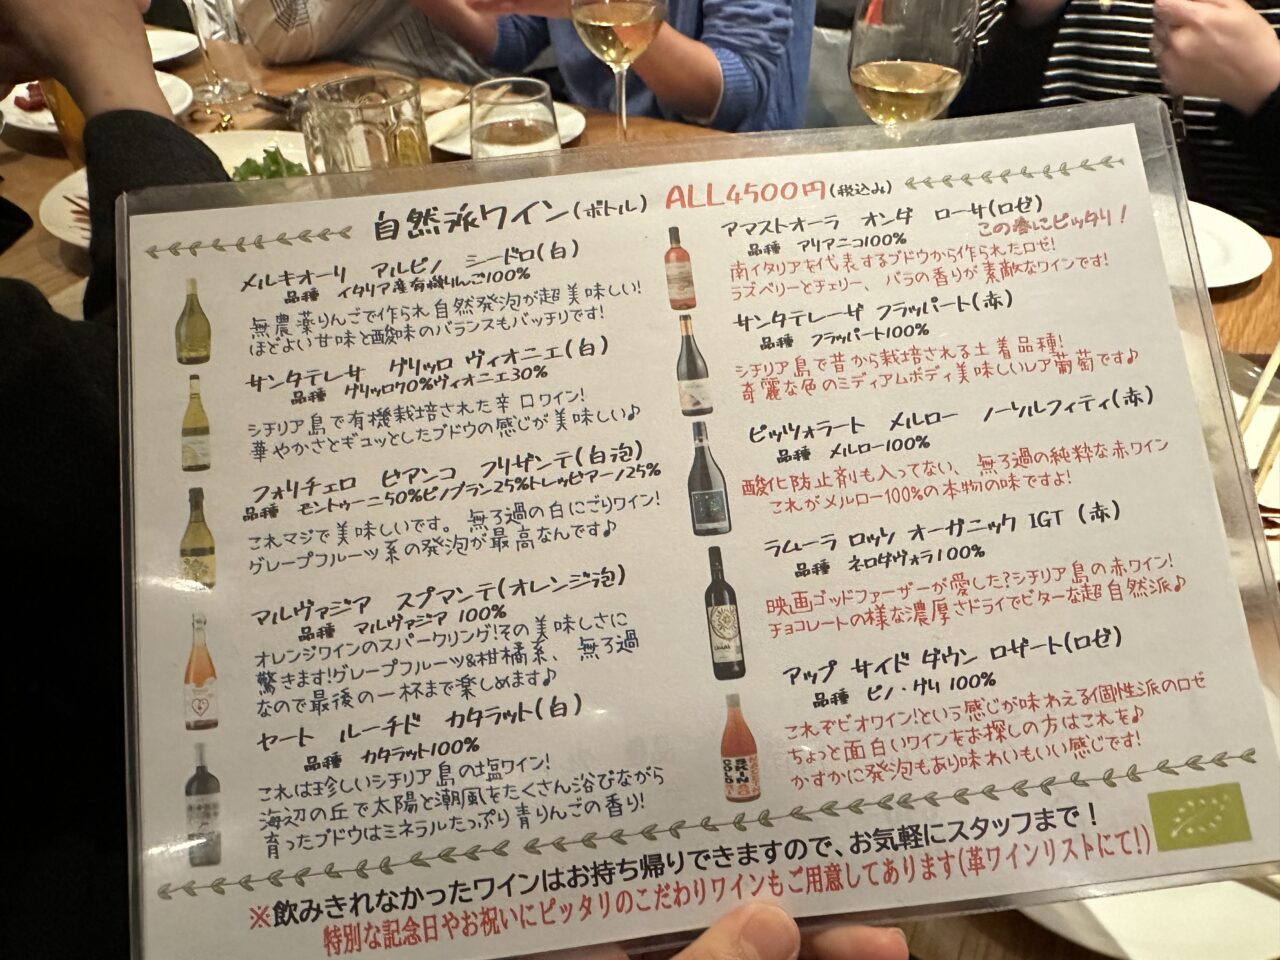 自然派ワイン(ボトル) ALL4500円(税込み)
メルキオーリ アルピノ シードロ(白)
品種 イタリア産有機りんご100%
無農薬りんごで作られ自然発泡が超美味しい!
ほどよい甘味と酸味のバランスもバッチリです!
サンタテレサ グリッロ ヴィオニエ(白)
品種 グリッロ70%ヴィオニエ30%
シチリア島で有機栽培された辛口ワイン!
華やかさとギュッとしたブドウの感じが美味しい♪
フォリチェロ ビアンコ フリザンテ(白泡)
品種 モントゥーニ50%ピノブラン25%トレッビアーノ25%
これマジで美味しいです。無ろ過の白にごりワイン!
グレープフルーツ系の発泡が最高なんです♪
マルヴァジア スプマンテ(オレンジ泡)
品種 マルヴァジア 100%
オレンジワインのスパークリング!その美味しさに
驚きます!グレープフルーツ&柑橘系、無ろ過
なので最後の一杯まで楽しめます♪
ヤート ルーチド カタラット(白)
品種 カタラット100%
これは珍しいシチリア島の塩ワイン!
海辺の丘で太陽と潮風をたくさん浴びながら
育ったブドウはミネラルたっぷり青りんごの香り!
アマストオーラ オンダ ローサ(ロゼ)
品種 アリアニコ100%
この春にピッタリ!
南イタリアを代表するブドウから作られたロゼ!
ラズベリーとチェリー、バラの香りが素敵なワインです!
サンタテレーザ フラッパート(赤)
品種 フラッパート100%
シチリア島で昔から栽培される土着品種!
奇麗な色のミディアムボディ美味しいレア葡萄です♪
ピッツォラート メルロー ノーソルフィティ(赤)
品種 メルロー100%
酸化防止剤も入ってない、無ろ過の純粋な赤ワイン
これがメルロー100%の本物の味ですよ!
ラムーラ ロッソ オーガニック IGT (赤)
品種 ネロダヴォラ100%
映画ゴッドファーザーが愛した?シチリア島の赤ワイン!
チョコレートの様な濃厚さドライでビターな超自然派♪
アップ サイド ダウン ロザート(ロゼ)
品種 ピノ・グリ 100%
これぞビオワイン!という感じが味わえる個性派のロゼ
ちょっと面白いワインをお探しの方はこれを♪
かすかに発泡もあり味わいもいい感じです!
※飲みきれなかったワインはお持ち帰りできますので、お気軽にスタッフまで!
特別な記念日やお祝いにピッタリのこだわりワインもご用意してあります(革ワインリストにて!)